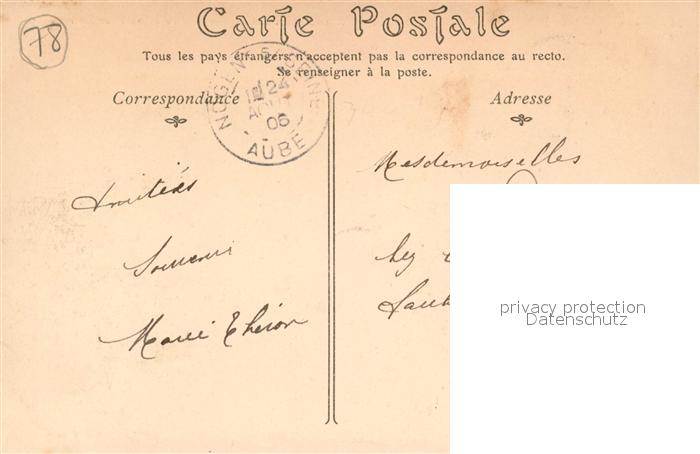 78
Carte Postale
Tous les pays étrangers n'acceptent pas la correspondance au recto.
Se renseigner à la poste.
Correspondance
Adresse
NOGENT S SEINE
24
AOUT
06
AUBE
Amitiés
Souvenir
Marie Théron
Mesdemoiselles
privacy protection
Datenschutz